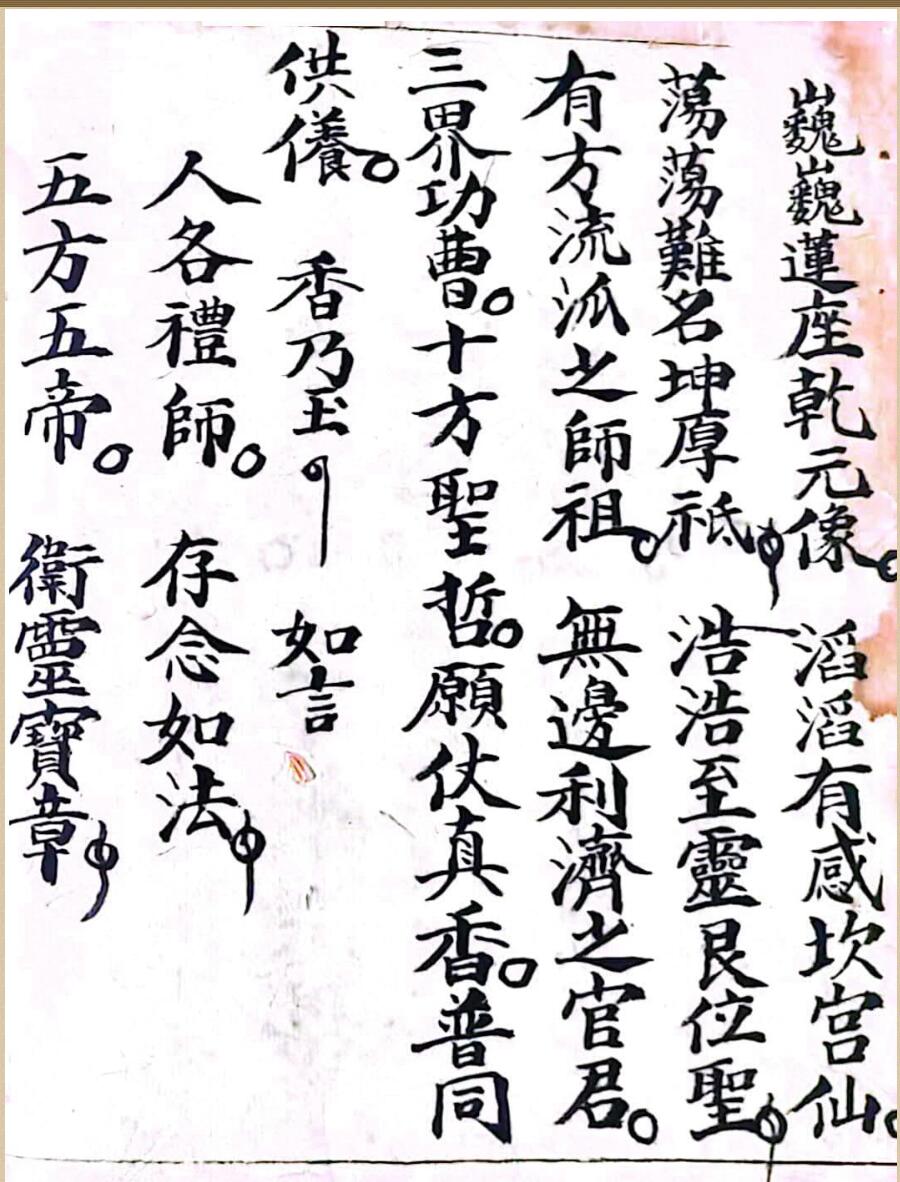 巍巍蓮座乾元像。滔滔有感坎宫仙。
蕩蕩難名坤厚祗 浩浩至靈艮位聖
有方流派之師祖。無邊利濟之官君。
三界功曹。十方聖哲。願仗真香。普同
供儀。 香乃玉 如言
人各禮師。存念如法
五方五帝。衛靈寶章